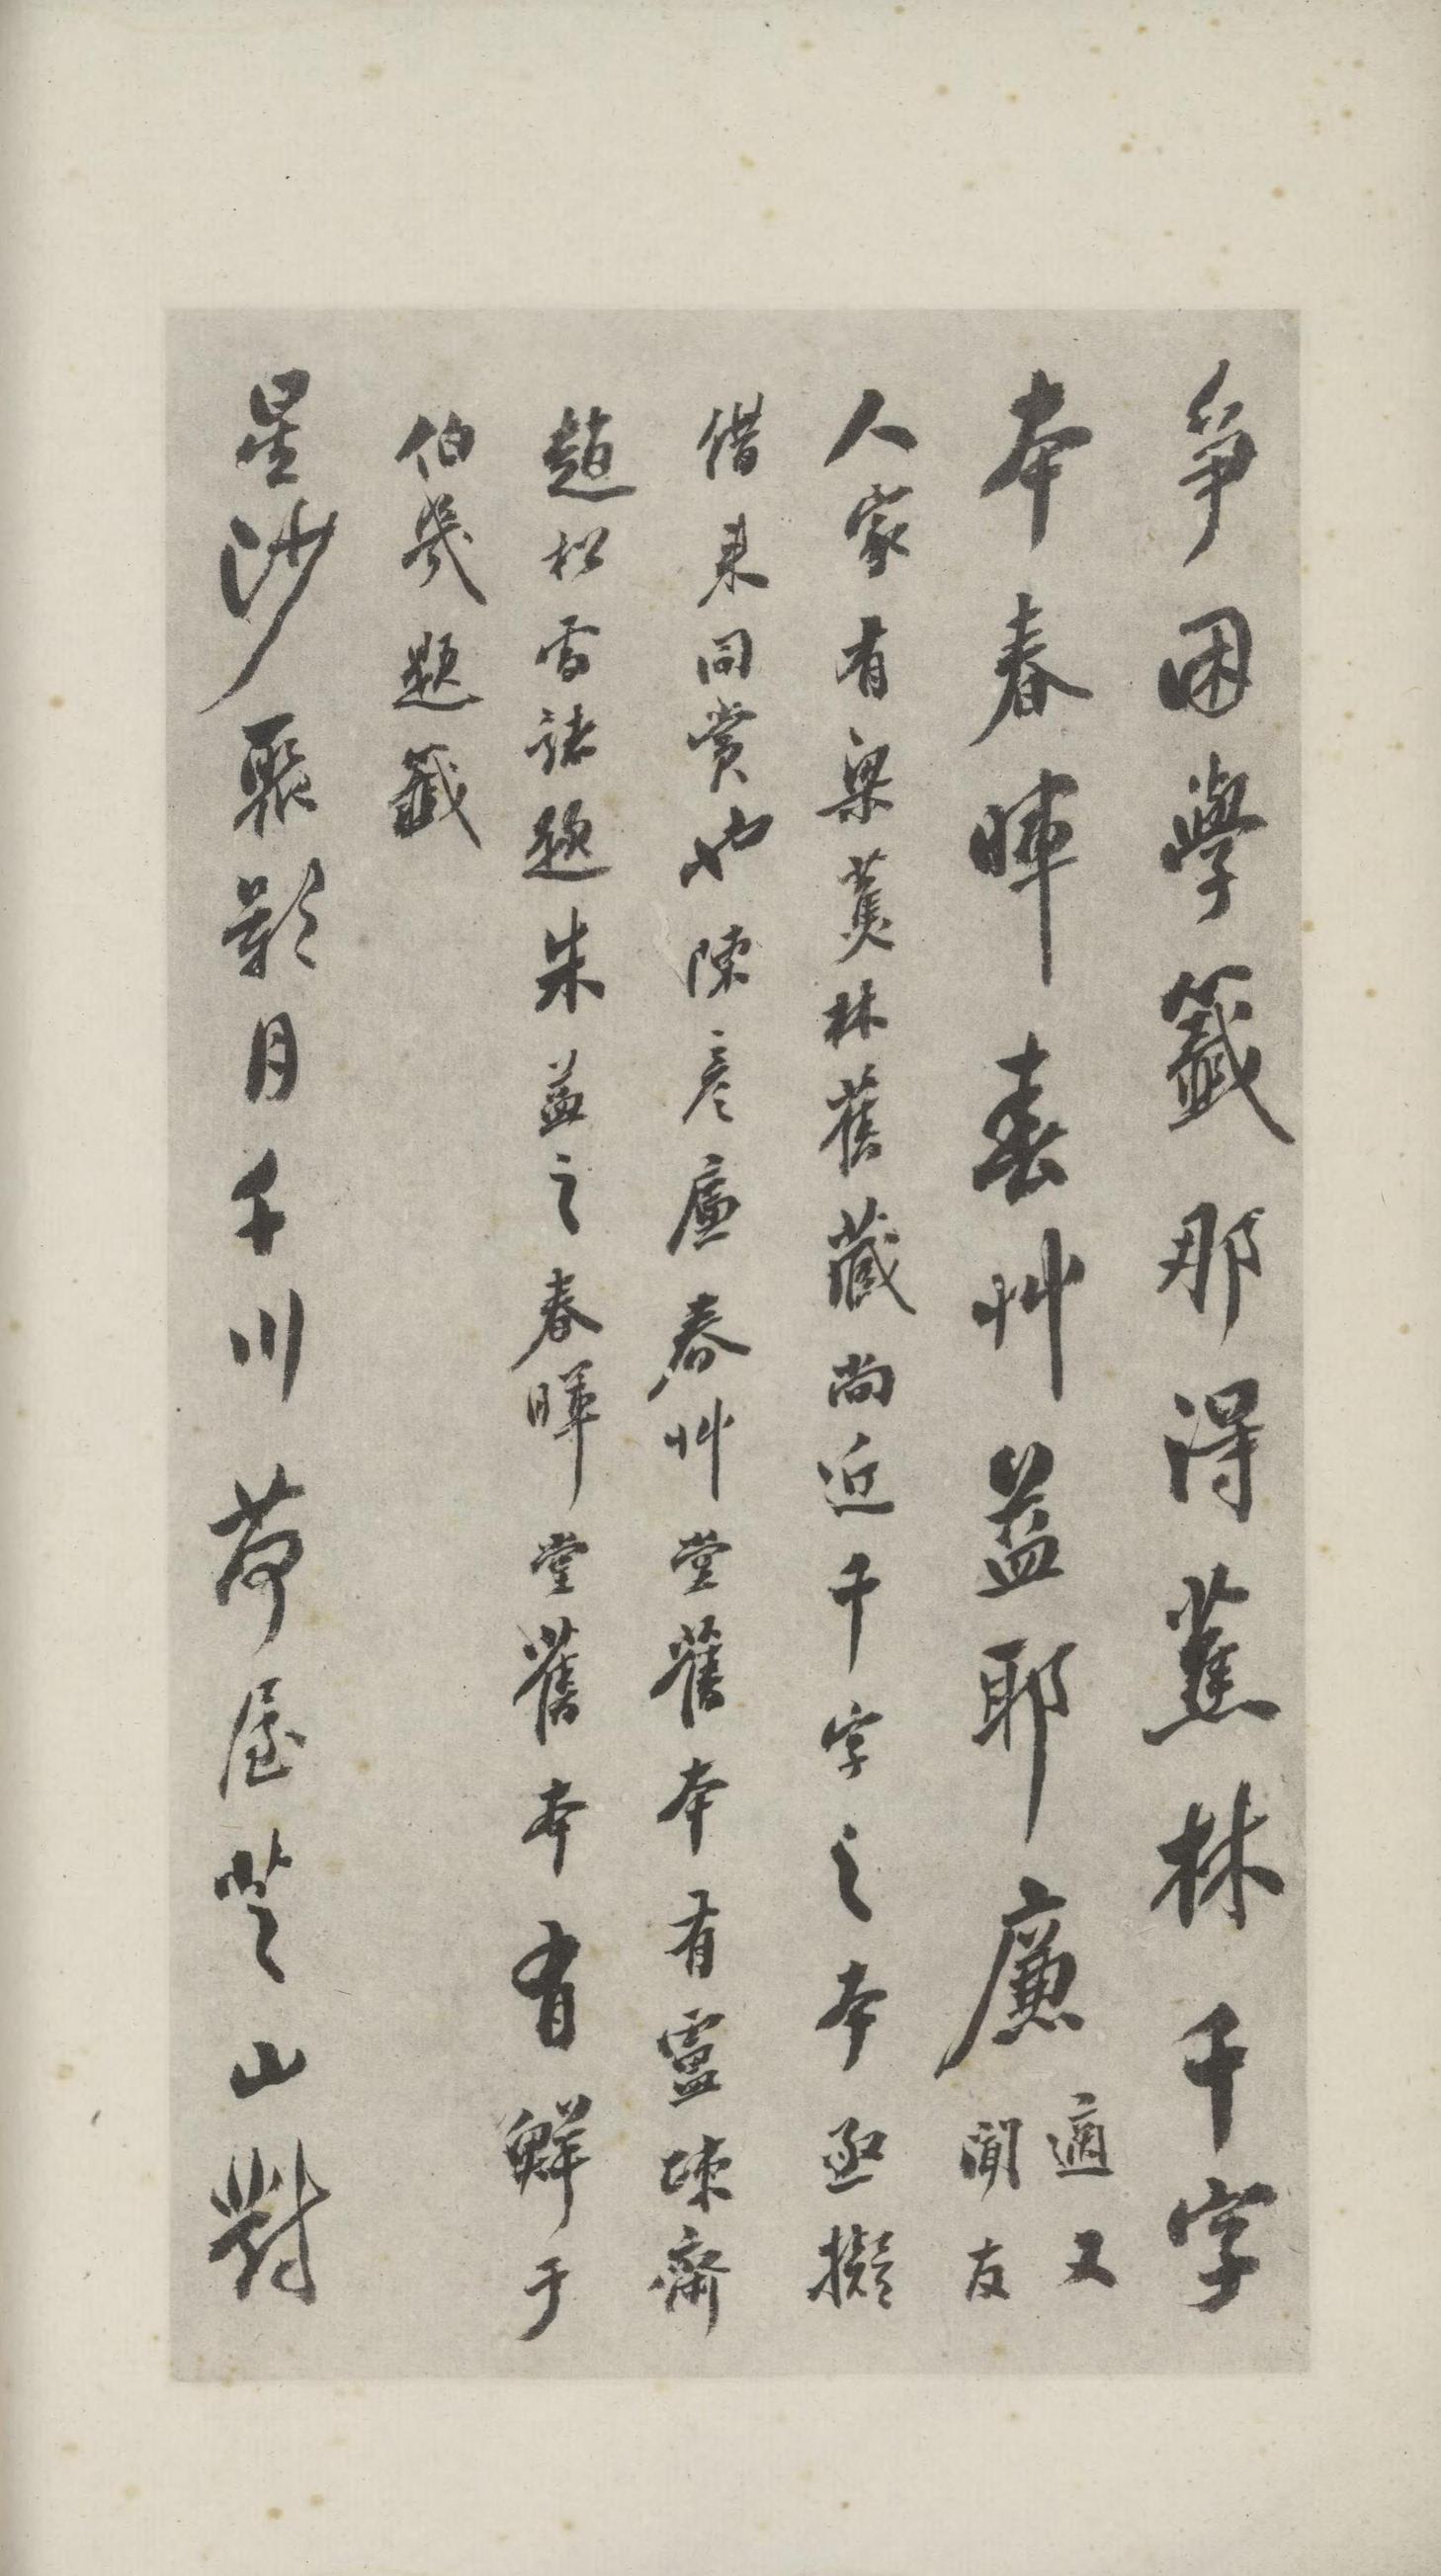 爭困學籤那得蕉林千字
本春暉春艸益耶廉
適又
聞友
人家有梁蕉林舊藏尚近千字之本亟擬
借來同賞也陳彥廉春艸堂舊本有盧疎齋
趙松雪諸題朱益之春暉堂舊本有鮮于
伯幾題籤
星沙聚影月千川荷屋芝山對